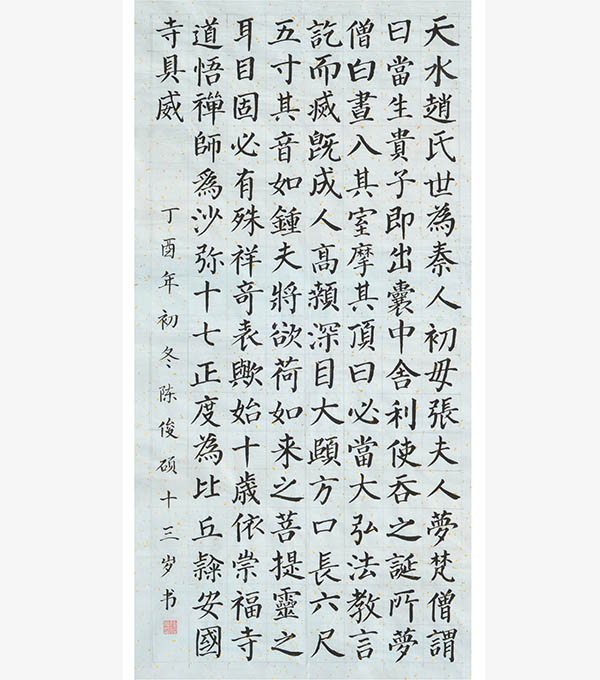 天水趙氏世為秦人初毋張夫人夢梵僧謂
曰當生貴子即出囊中舍利使吞之誕所夢
僧白晝入其室摩其頂曰必當大弘法教言
訖而滅旣成人高顙深目大頤方口長六尺
五寸其音如鍾夫將欲荷如来之菩提靈之
耳目固必有殊祥奇表歟始十歳依崇福寺
道悟禪師爲沙弥十七正度為比丘隸安國
寺具威
丁酉年初冬陈俊硕十三岁书